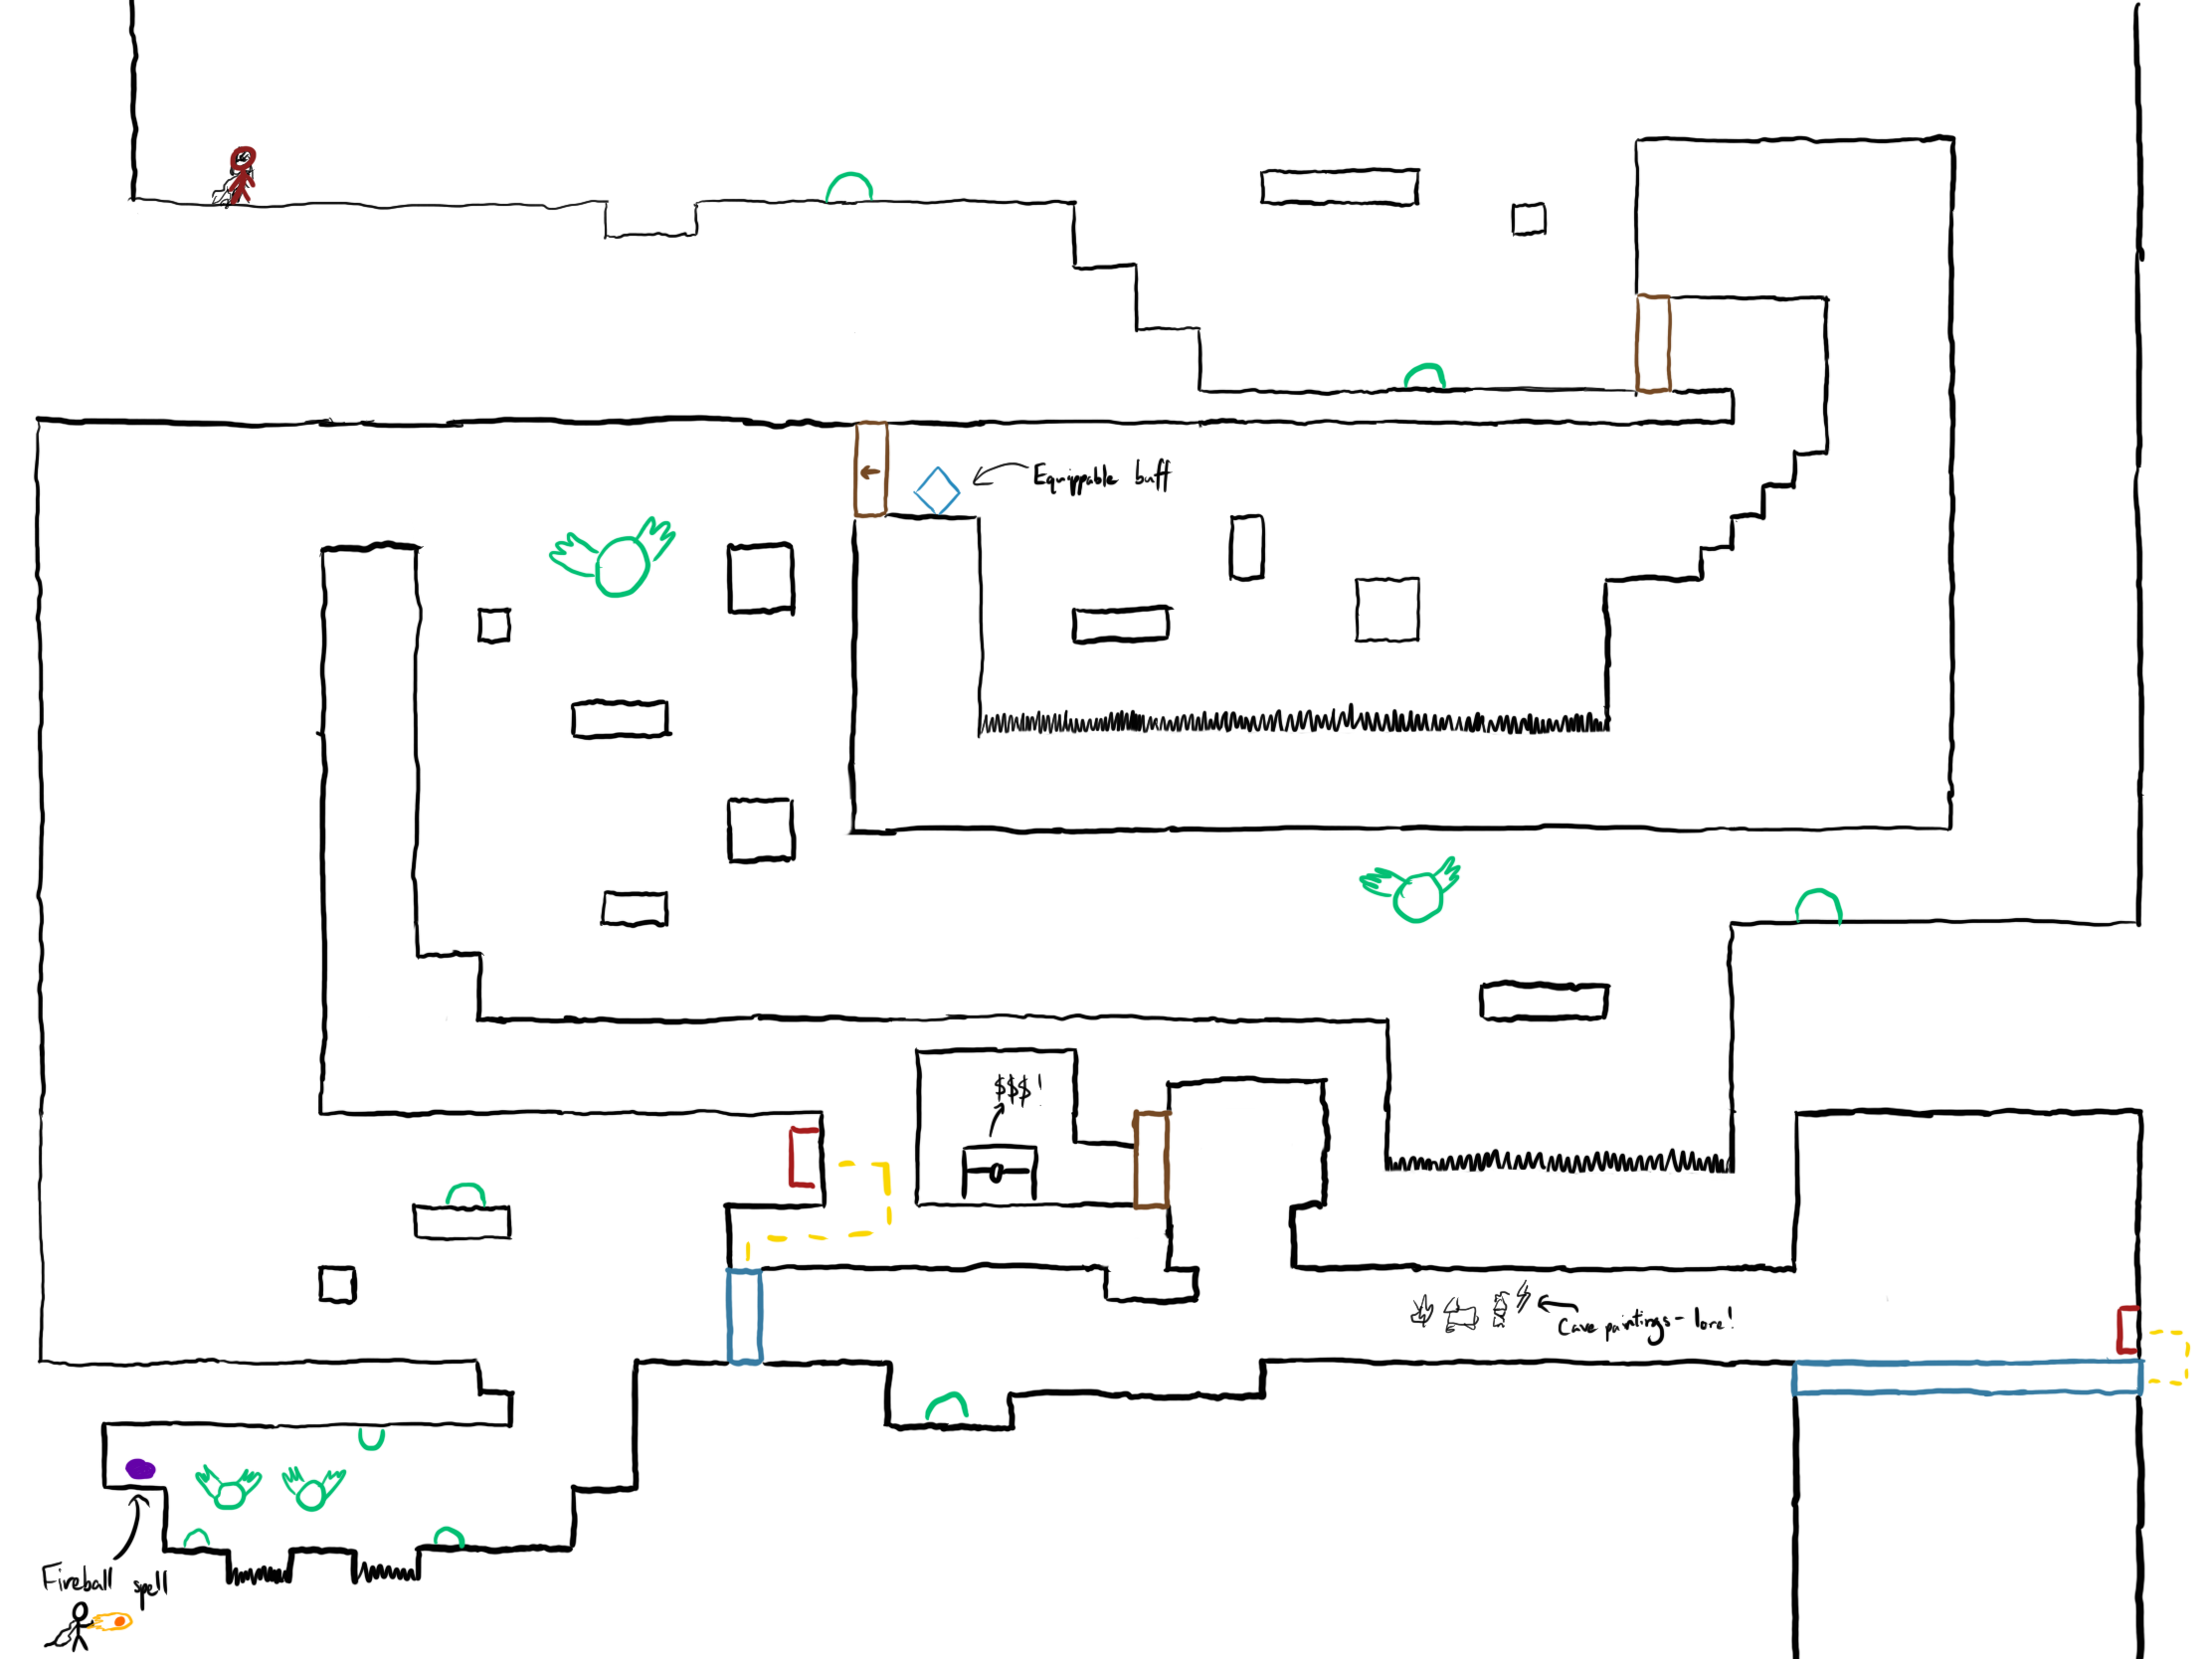 Equippable buff
$$$!
Cave paintings - lore!
Fireball spell